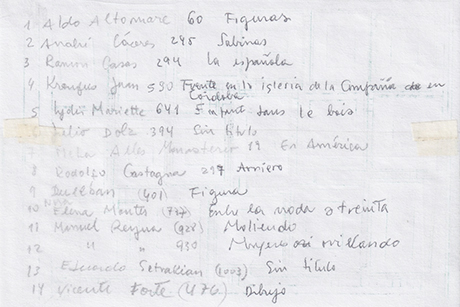 1 Aldo Altomare 60 Figuras
2 André Cáceres 245 Sabinas
3 Ramon Casas 294 La española
4 Juan 530 Frente en la iglesia de la Compañía en
Córdoba
5 Lydie Mariette 641 Enfant dans le bois
6 Julio Dolz 394 Sin título
7 Alles Monasterio 19 En América
8 Rodolfo Castagna 297 Arriero
9 (401) Figura
10 Elena Montes (777) Entre la moda y treinta
11 Manuel Reyna (928) Moliendo
12 " " 930 Mujeres
13 Eduardo Setrakian (1003) Sin título
14 Vicente Forte (476) Dibujo